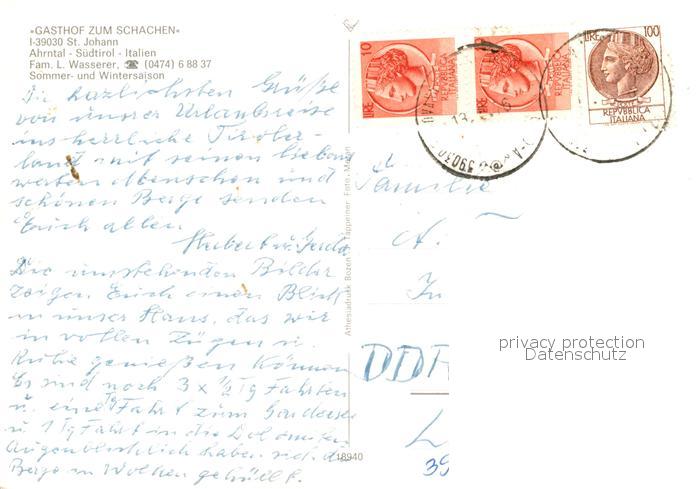 »GASTHOF ZUM SCHACHEN«
I-39030 St. Johann
Ahrntal - Südtirol - Italien
Fam. L. Wasserer, ☎ (0474) 6 88 37
Sommer- und Wintersaison
Die herzlichsten Grüße
von unserer Urlaubsreise
ins herrliche Tiroler-
land mit seinen liebens
werten Menschen und
schönen Berge senden
Euch allen
Hubert u. Gerda
Die umstehenden Bilder
zeigen Euch einen Blick
in unser Haus, das wir
in vollen Zügen u.
Ruhe genießen können
Es sind noch 3 x ½ Tg Fahrten
u. eine Tg Fahrt zum Gardasee
u. 1 Tg Fahrt in die Dolomiten
Augenblicklich haben sich die
Berge in Wolken gehüllt.
Athesiadruck Bozen Tappeiner Foto, Meran
18940
LIRE 10
REPVBBLICA
ITALIANA
LIRE
REPVBBLICA
ITALIANA
LIRE 100
REPVBBLICA
ITALIANA
39030
Familie
A.
DDR
L
39
privacy protection
Datenschutz